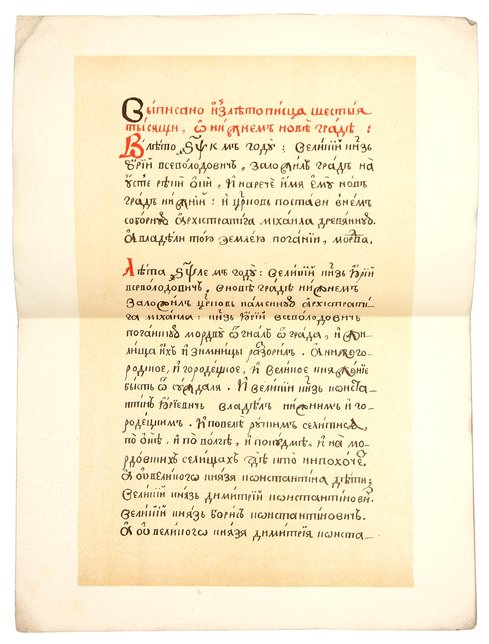 Выписано и҆злѣтописца шестыꙗ
тысѧщи, ѿ нижнемъ новѣ градѣ :
Влѣто ҂ѕ҃ѱк мъ году : великїй кн҃зь
ю҆рїй всеволодовичъ, заложилъ градъ на
ѹстїе рѣкѝ ѻ҆кѝ, и҆ нарече и҆мѧ є҆мꙋ новъ
градъ нижнїй : и҆ цр҃ковь постави внемъ
соборнꙋю а҆рхистратига михаила древѧннꙋю.
А҆ владѣли тою землею поганїи, мордва.
Лѣта ҂ѕ҃ѱле мъ годꙋ : великїй кн҃зь ю҆рїй
всеволодовичъ, вновѣ градѣ нижнемъ
заложилъ цр҃ковь каменнꙋю а҆рхистрати
га михаила : кн҃зь ю҆рїй всеволодовичь
поганꙋю мордвꙋ ѿгналъ ѿ града, и҆ жи
лища и҆хъ и҆ зимницы разорилъ. А҆ нижего
родцкое, и҆ городецкое, и҆ великое кнѧженїе
бысть ѿ сꙋждалѧ. И҆ великїй кн҃зь конста
нтинъ ю҆рїевичь владѣлъ нижнимъ и҆ го
родецкимъ. И҆ повелѣ рꙋскимъ селитисѧ
по ѻ҆кѣ, и҆ по волгѣ, и҆ покꙋдмѣ, и҆ на мо
рдовскихъ селищахъ гдѣ кто нипохоче.
А҆ оу великого кнѧзѧ константина дѣти :
великїй кнѧзь димитрїй константинови
великїй кнѧзь борисъ константиновичь.
А҆ оу великого кнѧзѧ димитрїѧ конста